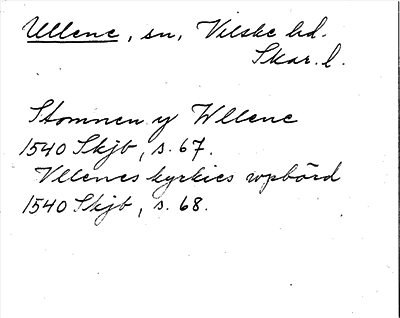 Ullene, sn, Vilske hd.
Skar. l.
Stomnen y Wllene
1540 Skjb, s. 67.
Vllenes kyrkies wpbörd
1540 Skjb, s. 68.